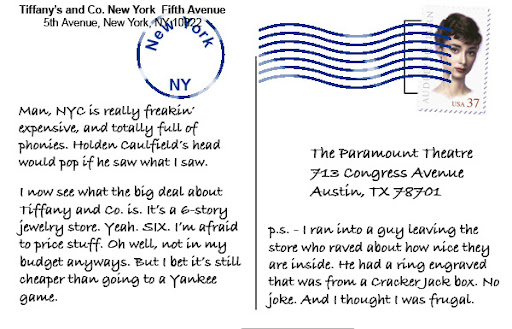 Tiffany's and Co. New York Fifth Avenue
5th Avenue, New York, NY 10022
New York
NY
AUDREY HEPBURN
USA 37
Man, NYC is really freakin'
expensive, and totally full of
phonies. Holden Caulfield's head
would pop if he saw what I saw.
I now see what the big deal about
Tiffany and Co. is. It's a 6-story
jewelry store. Yeah. SIX. I'm afraid
to price stuff. Oh well, not in my
budget anyways. But I bet it's still
cheaper than going to a Yankee
game.
The Paramount Theatre
713 Congress Avenue
Austin, TX 78701
p.s. - I ran into a guy leaving the
store who raved about how nice they
are inside. He had a ring engraved
that was from a Cracker Jack box. No
joke. And I thought I was frugal.